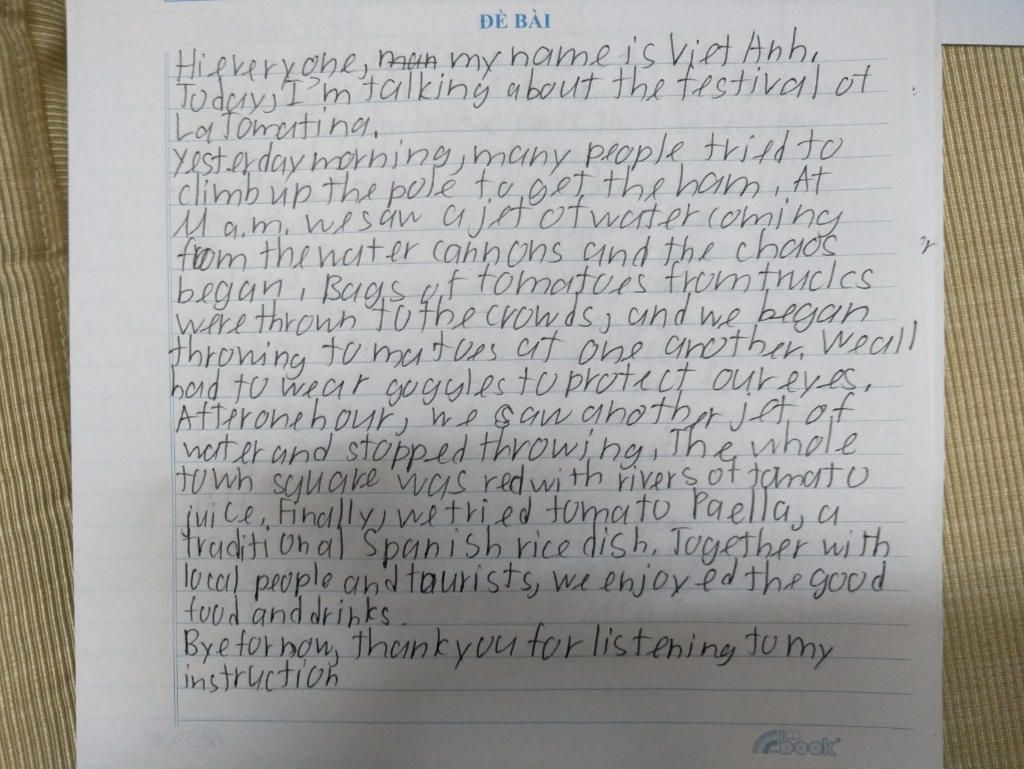 ĐỀ BÀI
Hi everyone, man my name is Việt Anh.
Today, I'm talking about the festival of
La Tomatina.
Yesterday morning, many people tried to
climb up the pole to get the ham. At
11 a.m. we saw a jet of water coming
from the water cannons and the chaos
began. Bags of tomatoes from trucks
were thrown to the crowds, and we began
throwing tomatoes at one another. We all
had to wear goggles to protect our eyes.
After one hour, we saw another jet of
water and stopped throwing. The whole
town square was red with rivers of tomato
juice. Finally, we tried tomato Paella, a
traditional Spanish rice dish. Together with
local people and tourists, we enjoyed the good
food and drinks.
Bye for now, thank you for listening to my
instruction
book